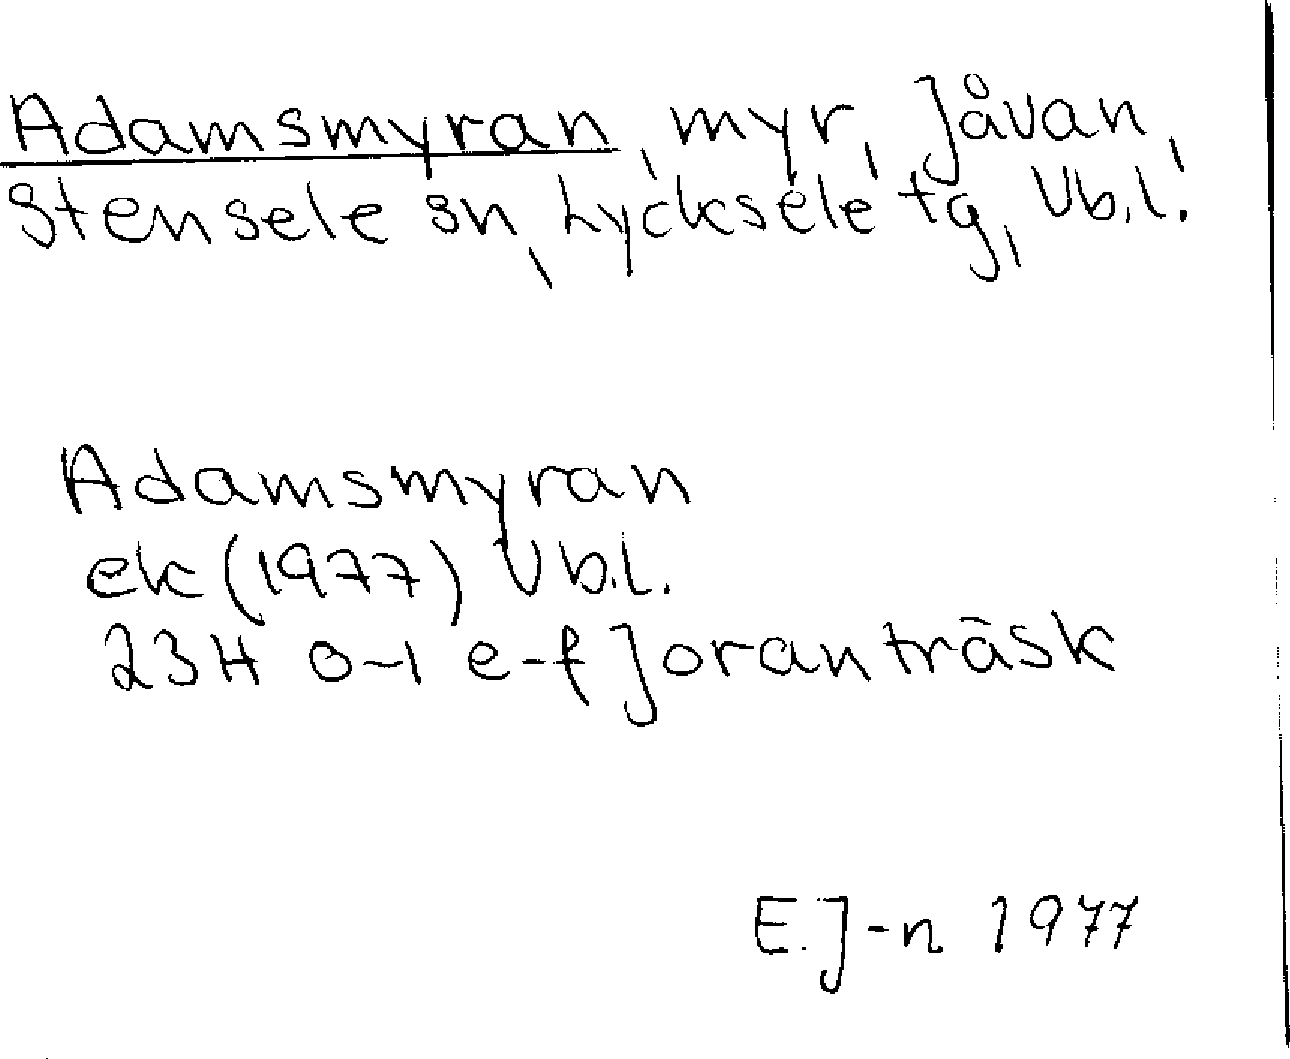 Adamsmyran, myr, Jåvan,
Stensele sn, Lycksele tg, Vb.l.
Adamsmyran
ek (1977) Vb.l.
23H 0-1 e-f Joranträsk
E.J-n 1977